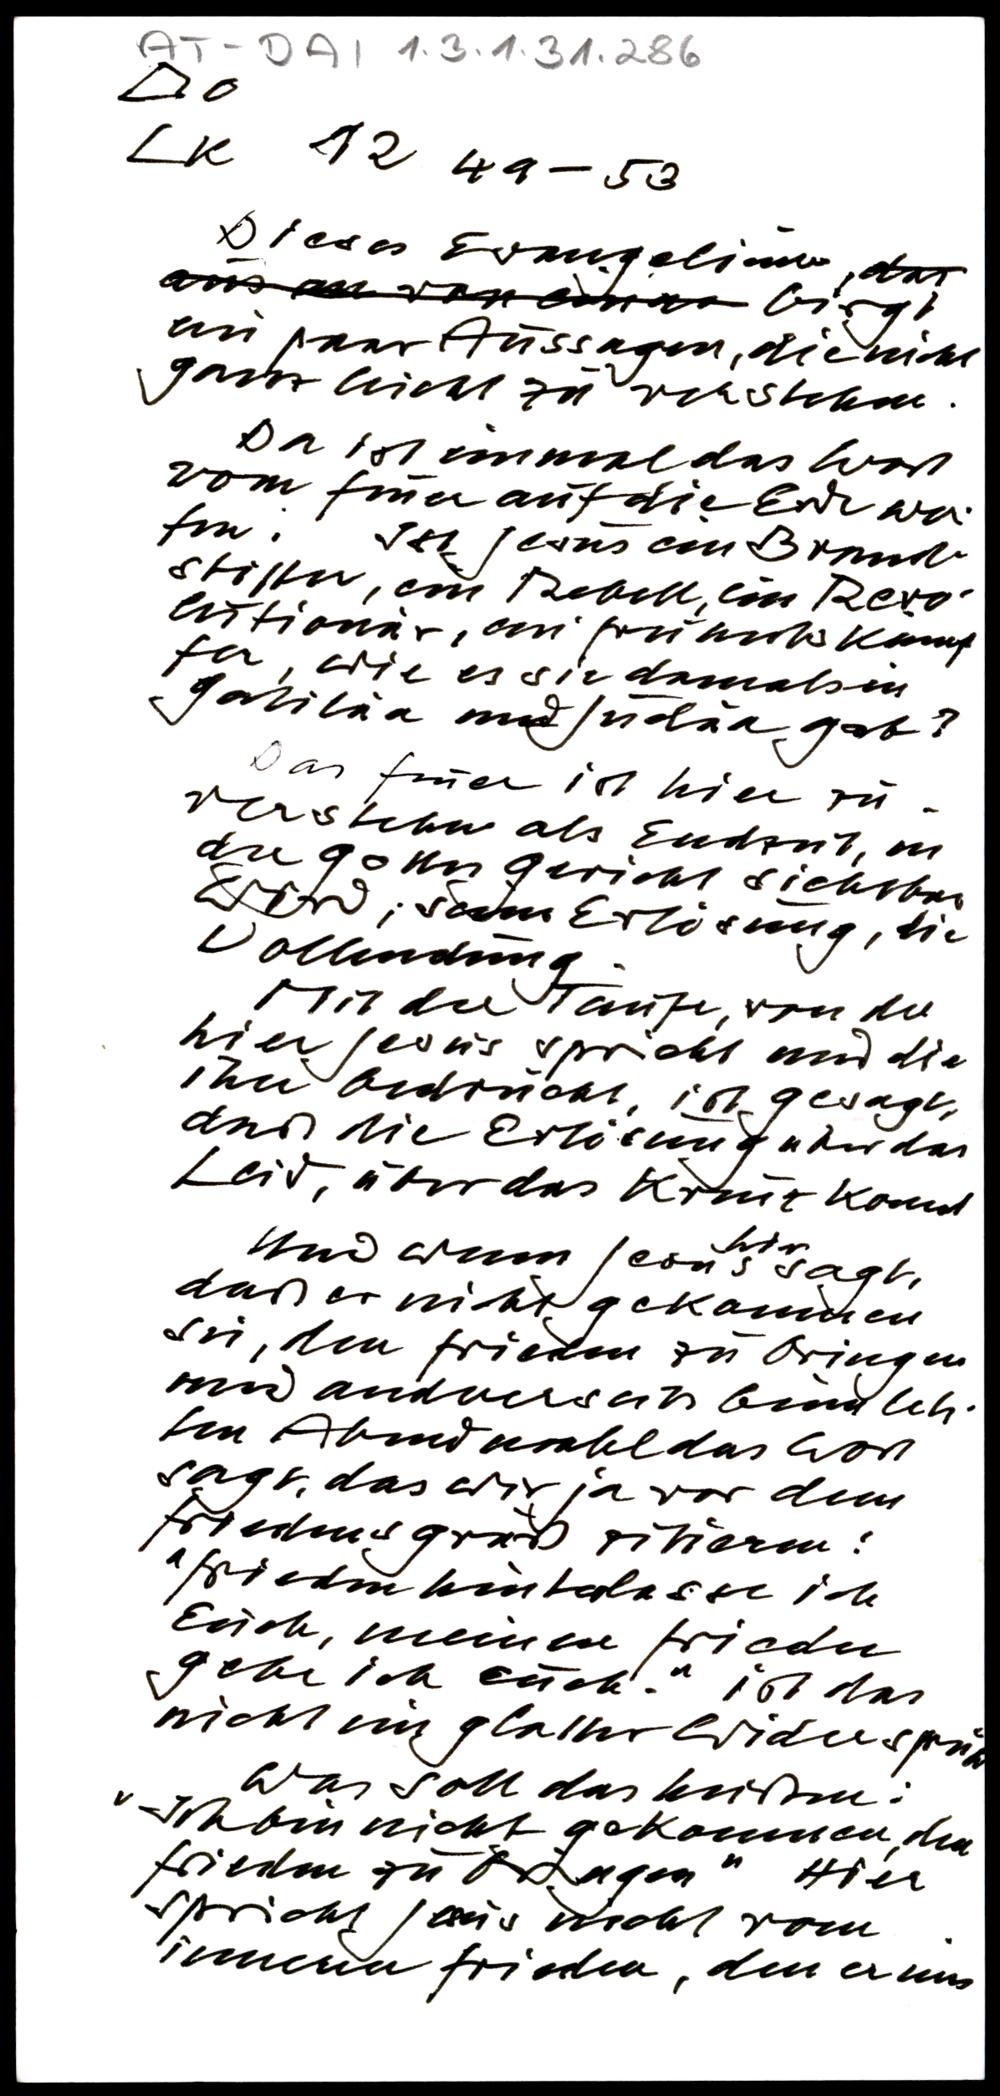 AT-DAI 1.3.1.31.286
Do
LK 12 49-53
Dieses Evangelium, das
aus birgt
ein paar Aussagen, die nicht
ganz leicht zu verstehen.
Da ist einmal das Wort
vom Feuer auf die Erde wer-
fen: Ist Jesus ein Brand-
stifter, ein Rebell, ein Revo-
lutionär, ein Kämp
fer, wie es sie damals in
Galiläa und Judäa gab?
Das Feuer ist hier zu
verstehen als Endzeit, in
der Gottes Gericht sichtbar
wird, seine Erlösung, die
Vollendung.
Mit der Taufe, von der
hier Jesus spricht und die
ihn bedrückt, ist gesagt,
daß die Erlösung über das
Leid, über das Kreuz kommt
Und wenn Jesus hier sagt,
daß er nicht gekommen
sei, den Frieden zu bringen
und andererseits beim letz-
ten Abendmahl das Wort
sagt, das wir ja vor dem
Friedensgruß zitieren:
"Frieden hinterlasse ich
Euch, meinen Frieden
gebe ich euch." ist das
nicht ein glatter Widerspruch
Was soll das heißen:
"Ich bin nicht gekommen, den
Frieden zu bringen" Hier
spricht Jesus nicht vom
inneren Frieden, den er uns